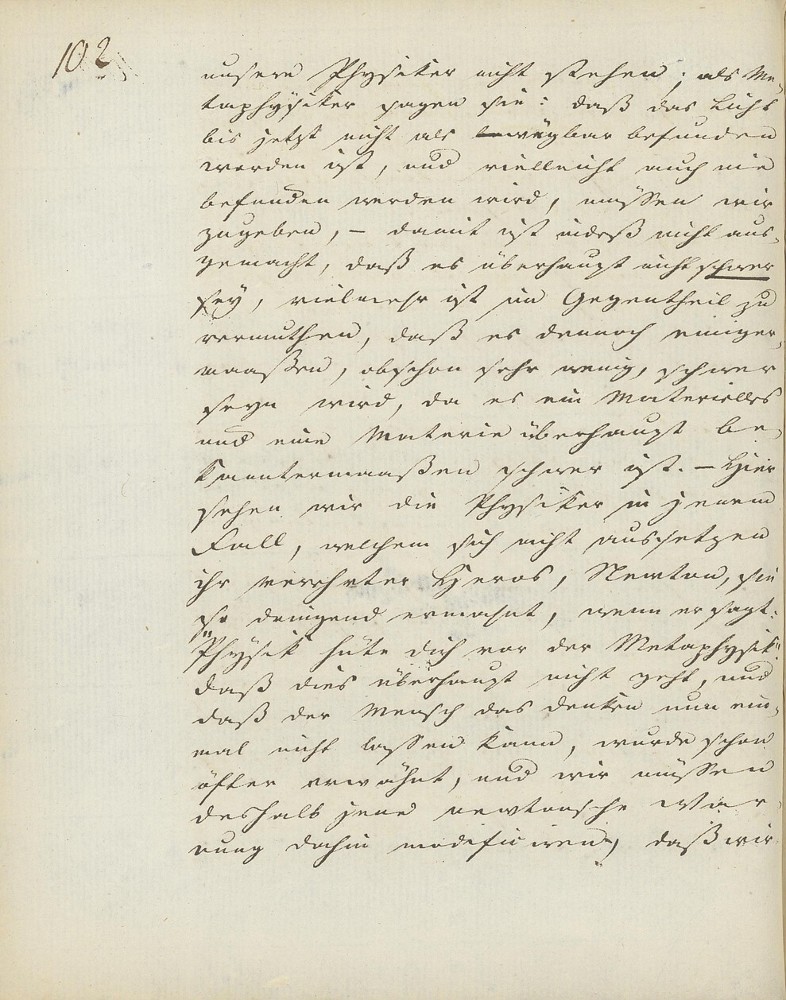 102.
unsere Physiker nicht stehen; als Me-
taphysiker sagen sie: daß das Licht
bis jetzt nicht als wägbar befunden
worden ist, und vielleicht auch nie
befunden werden wird, müssen wir
zugeben, – damit ist indeß nicht aus-
gemacht, daß es überhaupt nicht schwer
sey, vielmehr ist im Gegentheil zu
vermuthen, daß es dennoch einiger-
maaßen, obschon sehr wenig, schwer
seyn wird, da es ein Materielles
und eine Materie überhaupt be-
kanntermaaßen schwer ist. – Hier
sehen wir die Physiker in jenem
Fall, welchem sich nicht auszusetzen
ihr verehrter Heros, Newton, sie
so dringend ermahnt, wenn er sagt:
"Physik hüte dich vor der Metaphysik"
daß dies überhaupt nicht geht, und
daß der Mensch das denken nun ein-
mal nicht lassen kann, wurde schon
öfter erwähnt, und wir müssen
deshalb jene newtonsche War-
nung dahin modificiren, daß wir